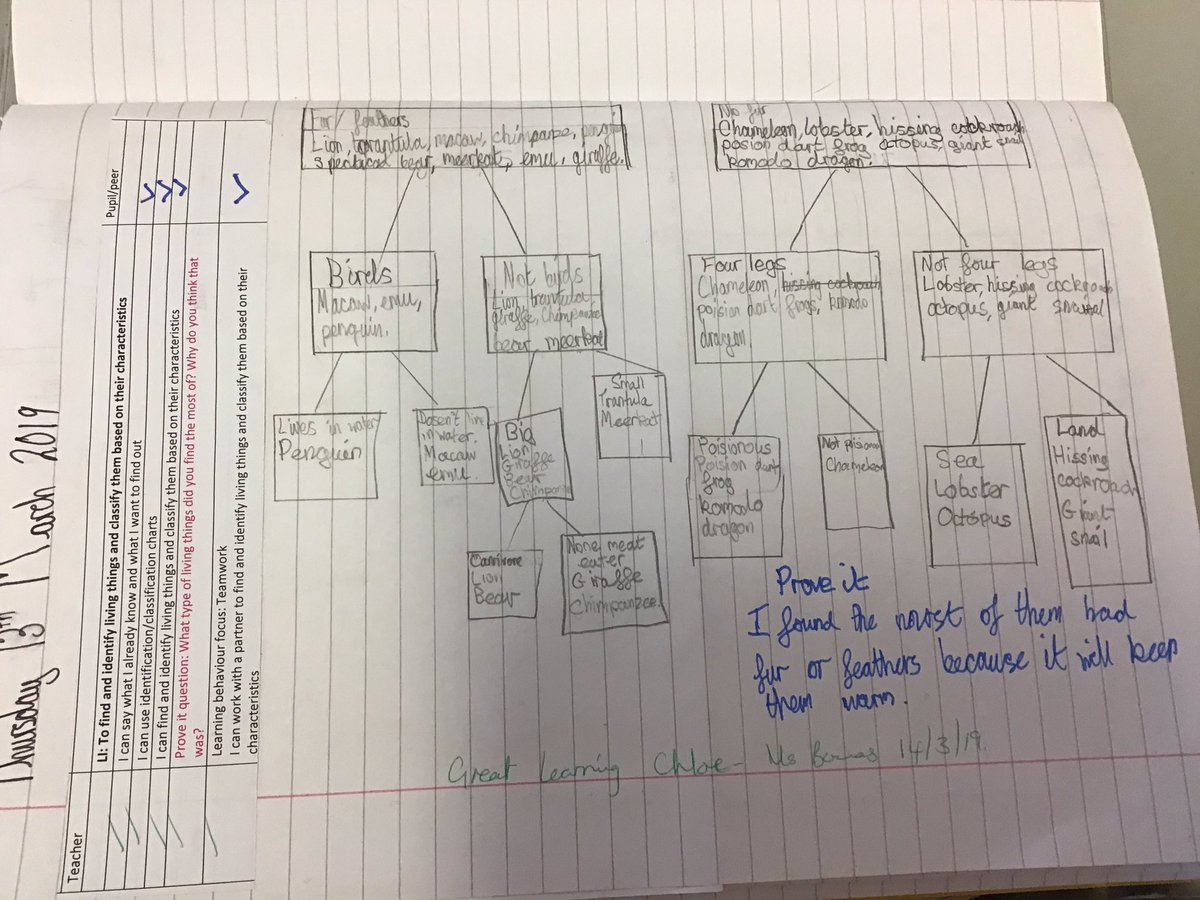 Thursday 13th March 2019
Teacher
Pupil/peer
LI: To find and identify living things and classify them based on their characteristics
I can say what I already know and what I want to find out
I can use identification/classification charts
I can find and identify living things and classify them based on their characteristics
Prove it question: What type of living things did you find the most of? Why do you think that
was?
Learning behaviour focus: Teamwork
I can work with a partner to find and identify living things and classify them based on their
characteristics
Fur/ feathers
Lion, tarantula, macaw, chimpanze, penguin
spectacad bear, meerkats, emu, giraffe.
No fur
Chameleon, lobster, hissing cockroach
posion dart frog octopus, giant snail
komodo dragon.
Birds
Macaw, emu,
penguin.
Not birds
Lion trantulat,
giraffe, chimpanze
bear meerkat
Four legs
Chameleon, hissing cockroach
poision dart frogs, komodo
dragon.
Not four legs
Lobster, hissing cockroach
octopus, giant
Lives in water
Penguin
Dosen't live
in water.
Macaw
emu.
Big
Lion
Giraffe
Bear
Chimpanze
Small
Trantula
Meerkat
Poisionous
Poision dart
frog
komodo
dragon
Not pisionou
Chameleon
Sea
Lobster
Octopus
Land
Hissing
cockroach
Giant
snail
Carnivore
Lion
Bear
None meat
eater
Giraffe
Chimpanzee.
Prove it
I found the most of them had
fur or feathers because it will keep
them warm.
Great Learning Chloe - Ms 14/3/19.